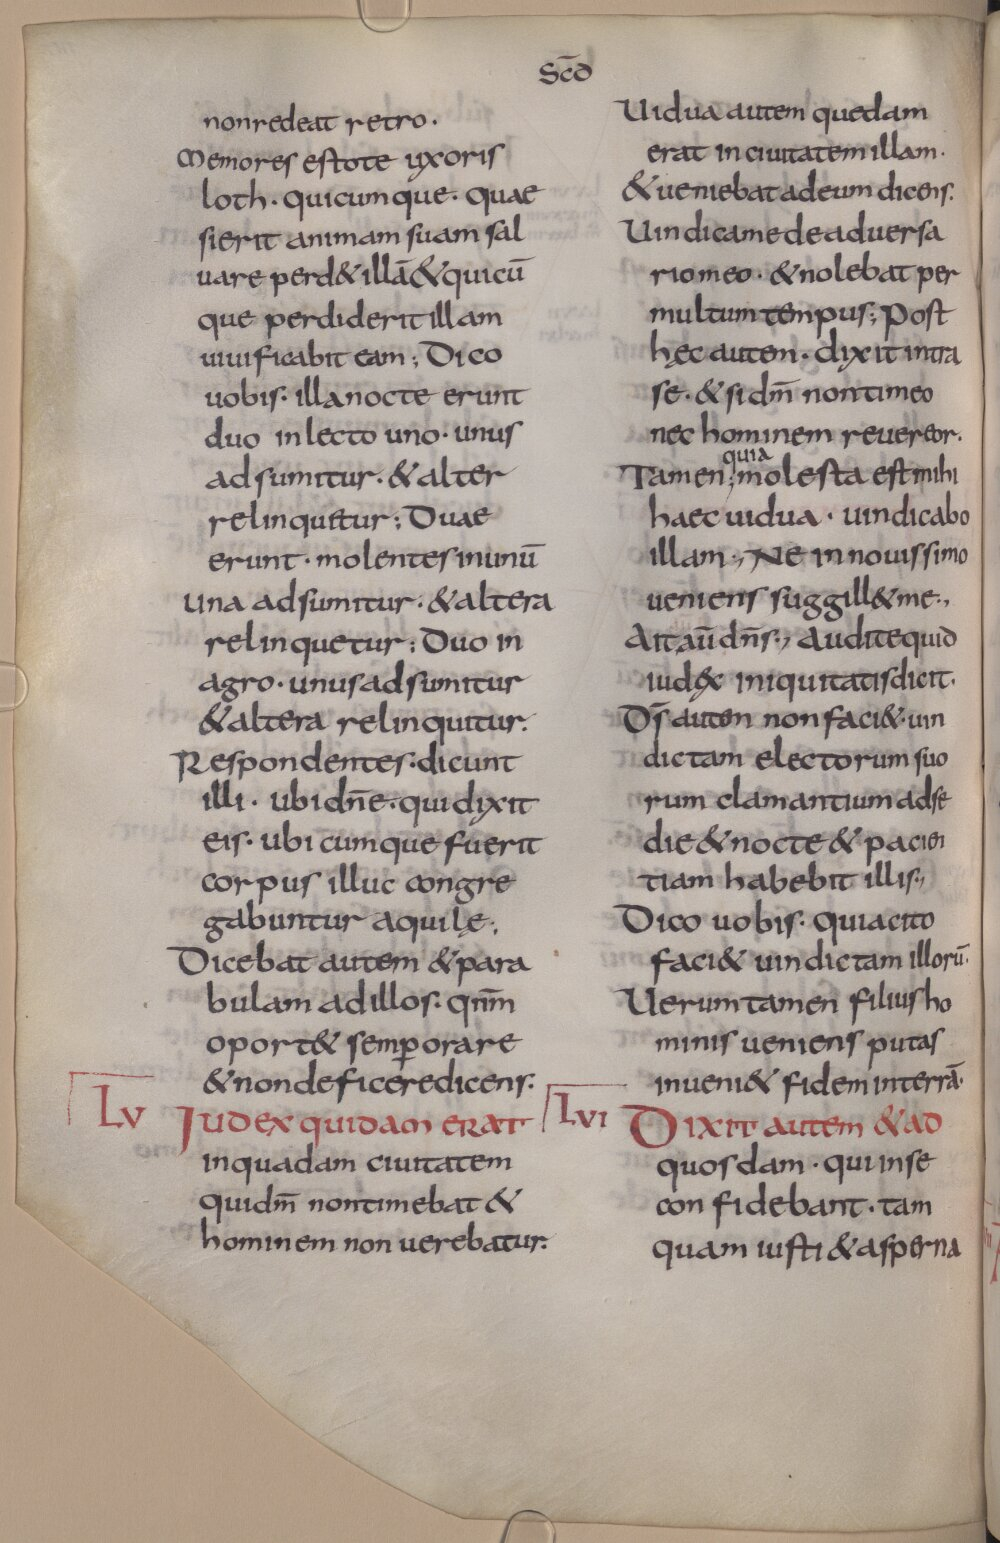 Sc̄d
non redeat retro.
Memores estote uxoris
loth. quicumque. quae
sierit animam suam sal
uare perd& illā & quicū
que perdiderit illam
uiuificabit eam; Dico
uobis. illa nocte erunt
duo in lecto uno. unus
adsumitur. & alter
relinquetur; Duae
erunt. molentes in unū
una adsumitur. & altera
relinquetur; Duo in
agro. unus adsumitur
& altera relinquitur.
Respondentes. dicunt
illi. ubi dn̄e. qui dixit
eis. ubi cumque fuerit
corpus illuc congre
gabuntur aquile;
Dicebat autem & para
bulam ad illos. qnm̄
oport& semp̄ orare
& non deficere dicens.
LV Iudex quidam erat
in quadam ciuitatem
qui dm̄ non timebat &
hominem non uerebatur.
Uidua autem quedam
erat in ciuitatem illam.
& ueniebat ad eum dicens.
Uindica me de aduersa
rio meo. & nolebat per
multum tempus; Post
hęc autem. dixit intra
se. & si dm̄ non timeo
nec hominem reuereor.
quia
Tamen; molesta est mihi
haec uidua. uindicabo
illam; Ne in nouissimo
ueniens suggill& me;
Ait aū dn̄s; Audite quid
iudex iniquitatis dicit.
Ds̄ autem non faci& uin
dictam electorum suo
rum clamantium ad se
die & nocte & pacien
tiam habebit illis;
Dico uobis. quia cito
faci& uindictam illorū.
Uerumtamen filius ho
minis ueniens putas
inueni& fidem in terrā.
LVI Dixit autem & ad
quosdam. qui in se
confidebant. tam
quam iusti & asperna